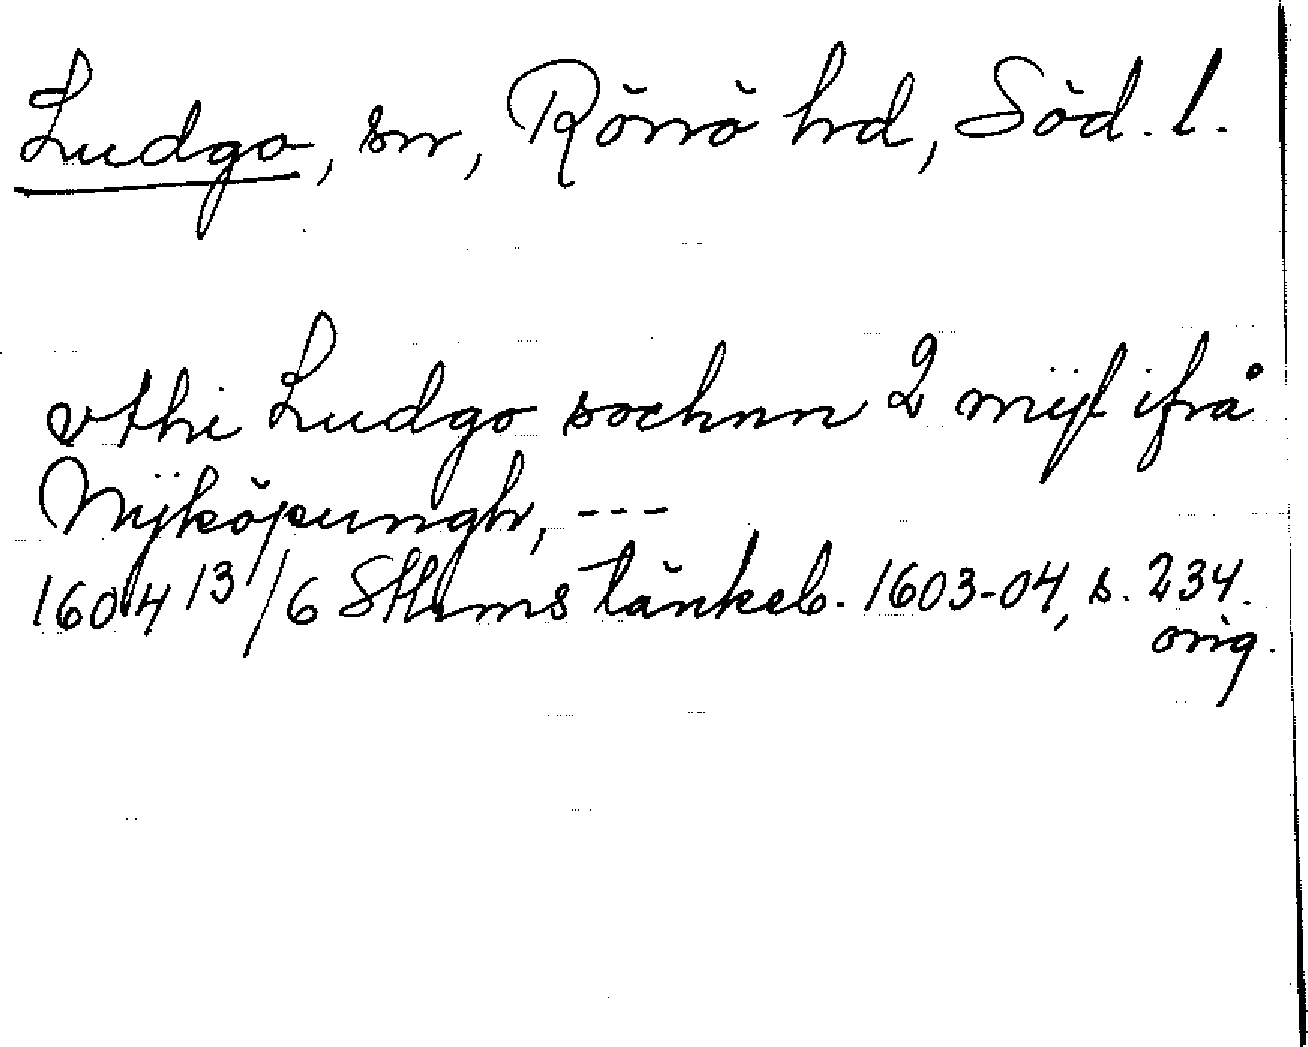 Ludgo, sn, Rönö hrd, Söd. l.
vthi Ludgo sochnn 2 mijl ifrå
Nijköpungh, ---
1604 13/6 Sthms tänkeb. 1603-04, s. 234.
orig.